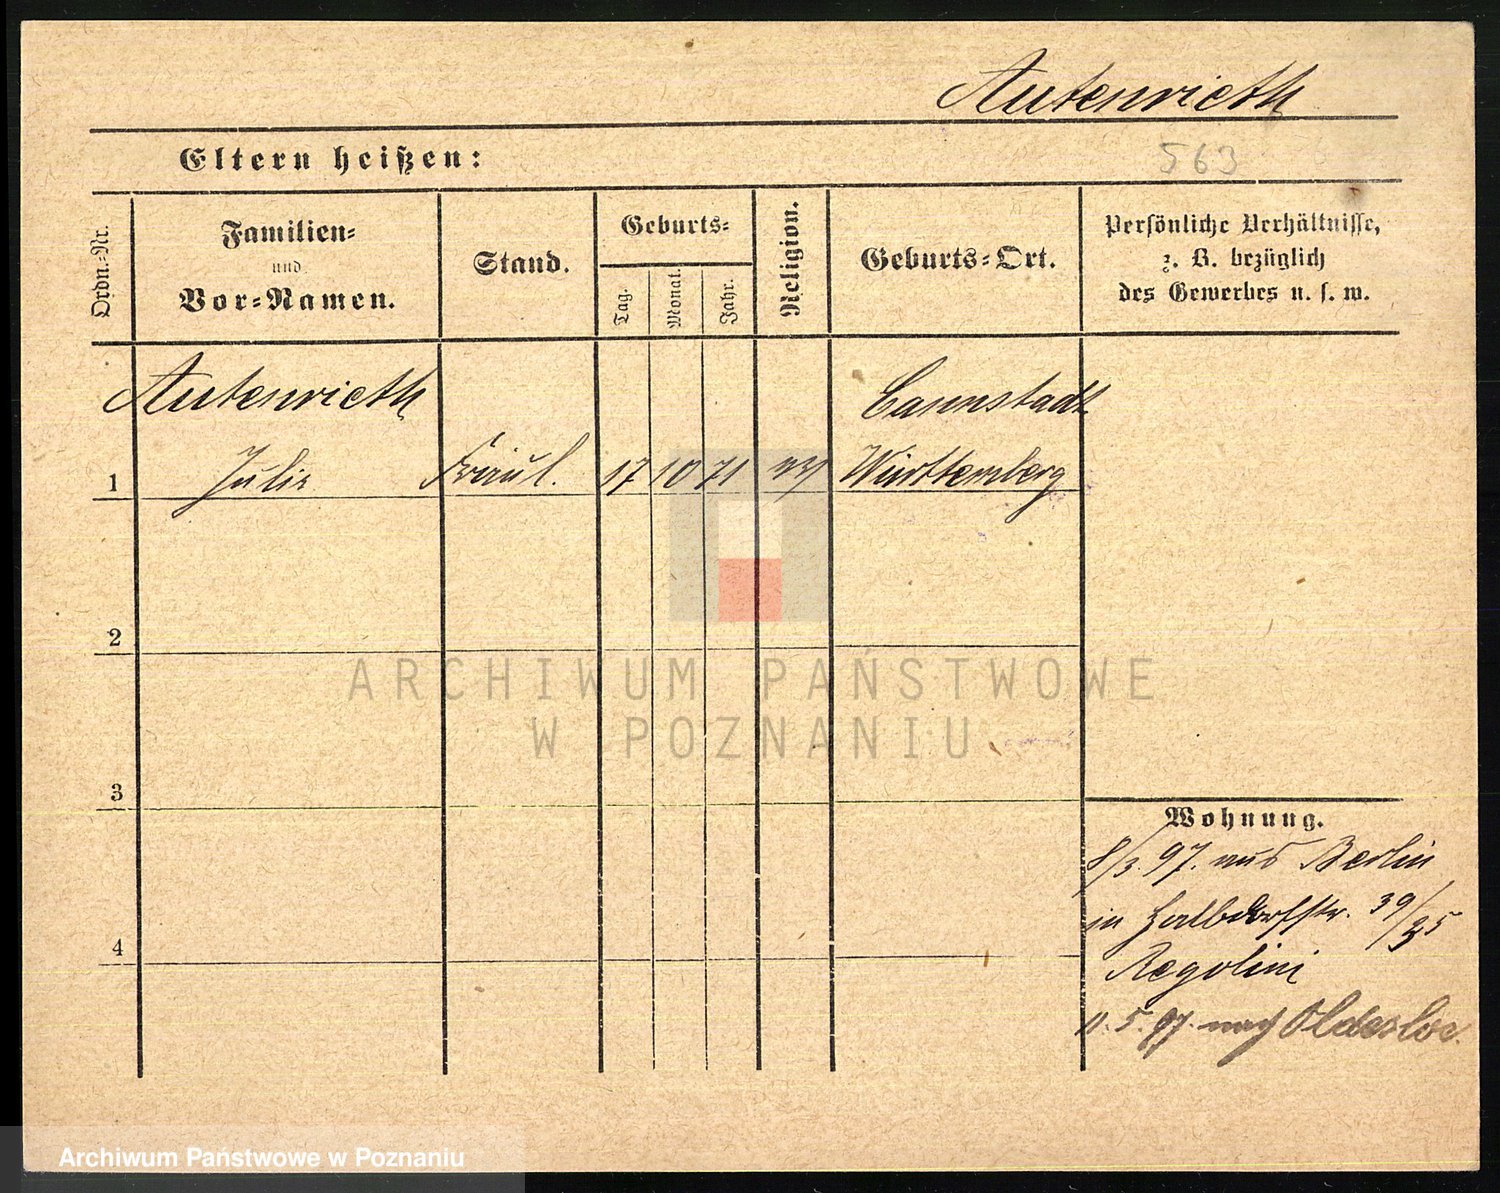 Autenrieth
Eltern heißen:
563
Ordn.-Nr.
Familien-
und
Vor-Namen.
Stand.
Geburts-
Tag.
Monat.
Jahr.
Religion.
Geburts-Ort.
Persönliche Verhältnisse,
z. B. bezüglich
des Gewerbes u. s. w.
Autenrieth
Cannstadt
1 Julie Fräul. 17 10 71 Württemberg
2
ARCHIWUM PAŃSTWOWE
W POZNANIU
3
Wohnung.
8/3. 97. aus Berlin
in Halbdorfstr. 39/
Regolini
4
11. 5. 97. nach Oldesloe.
Archiwum Państwowe w Poznaniu